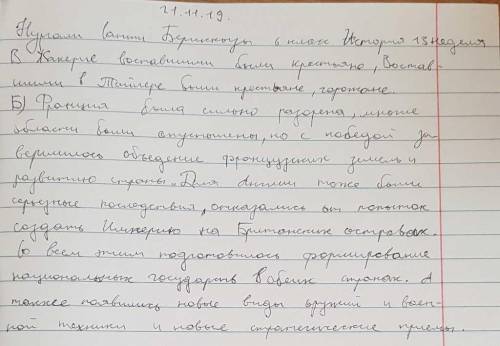 21.11.19.
6 класс История 13 неделя
В Жакерие воставшими были крестьяне, Востав-
шими в Тайлере были крестьяне, горожане.
Б) Франция была сильно разорена, многие
области были опустошены, но с победой за-
вершилось объедение французских земель и
развитию страны. Для Англии тоже были
серьезные последствия, отказались от попыток
создать Империю на Британских островах.
Со всем этим подготовилось формирование
национальных государств в обеих странах. А
также появились новые виды оружий и воен-
ной техники и новые стратегические приемы.